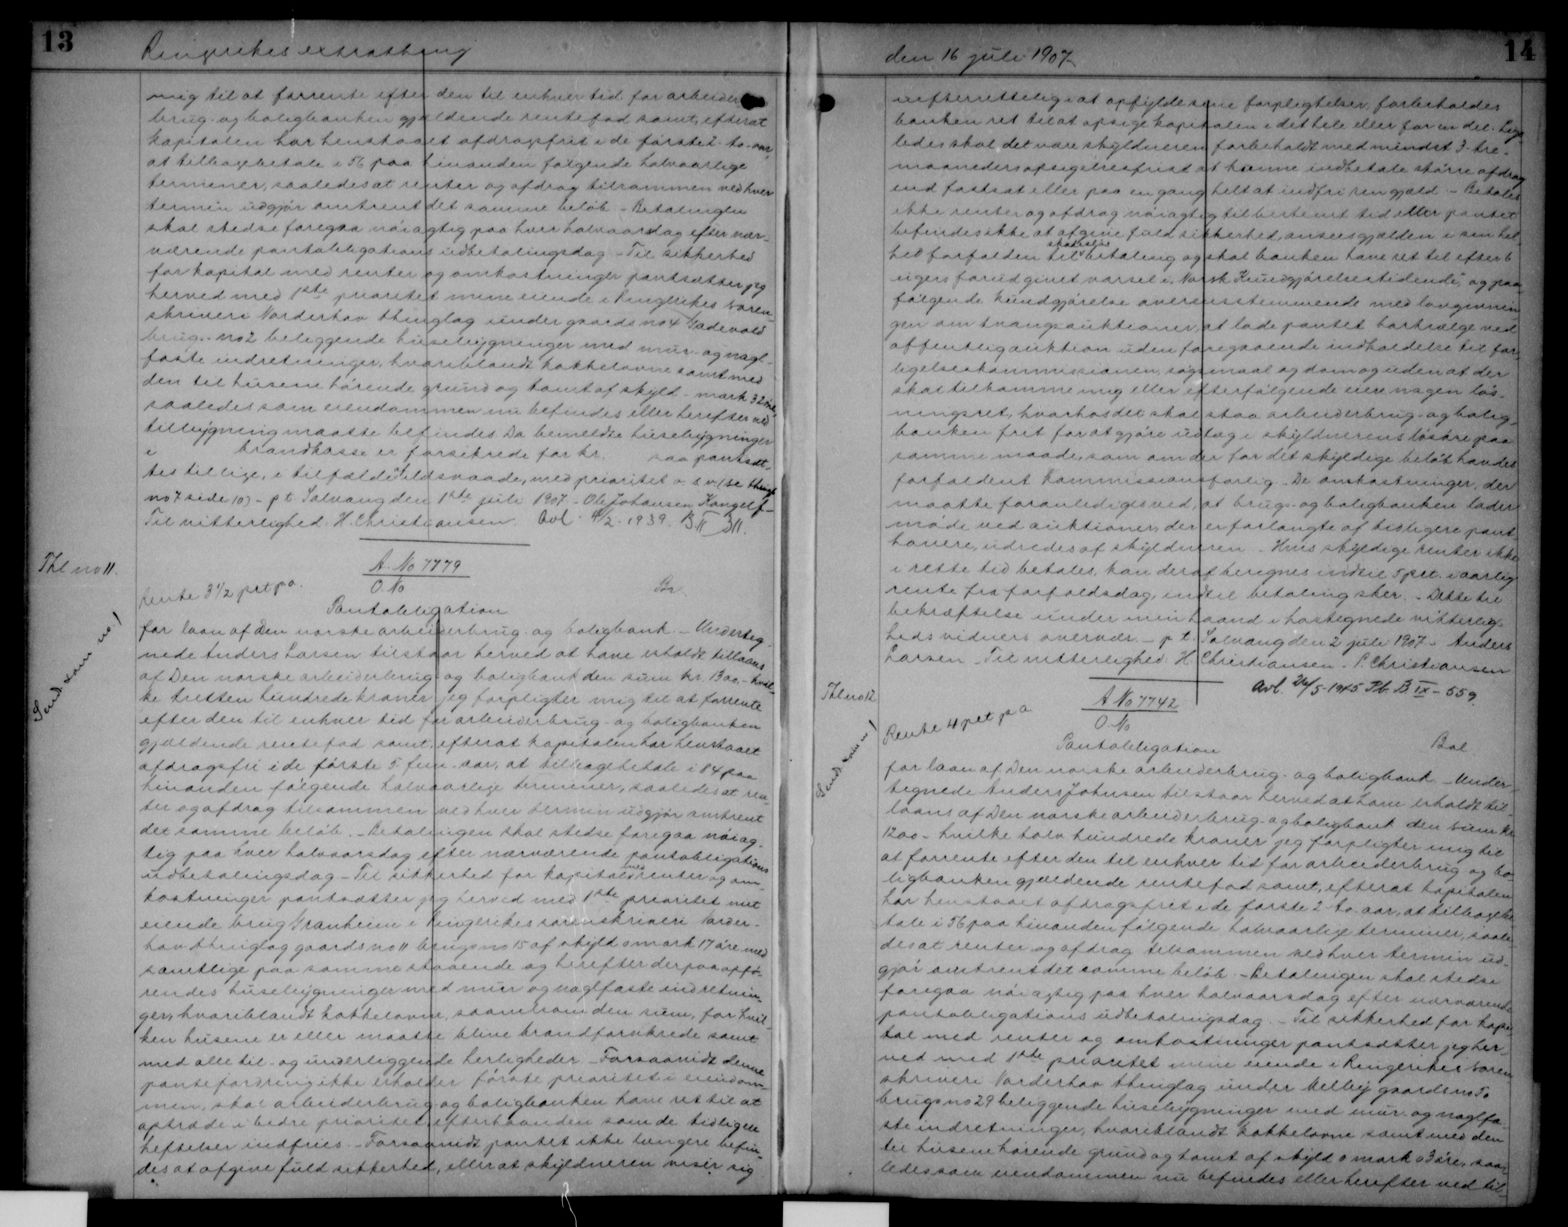 13
Ringerikes extrathing
mig til at forrente efter den til enhver tid for arbeider
brug- og boligbanken gjældende rentefod samt, efterat
kapitalen har henstaaet afdragsfrit i de første 2 to aar,
at tilbagebetale i 56 paa hinanden følgende halvaarlige
terminer, saaledes at renter og afdrag tilsammen ved hver
termin udgjør omtrent det samme beløb. - Betalingen
skal stedse foregaa nøiagtig paa hver halvaarsdag efter nær-
værende pantobligations udbetalingsdag. - Til sikkerhed
for kapital med renter og omkostninger pantsætter jeg
herved med 1ste prioritet mine eiende i Ringerikes soren-
skriveri Norderhov thinglag under gaards no 4
brugs no 2 beliggende husebygninger med mur- og nagl-
faste indretninger, hvoriblandt kakkelovne samt med
den til husene hørende grund og tomt af skyld - mark 32 øre,
saaledes som eiendommen nu befindes eller herefter ved
tilbygning maatte befindes Da bemeldte husebygninger
i brandkasse er forsikrede for kr. saa pantsæt-
tes tillige, i tilfælde ildsvaade, med prioritet o s v (se thingl
no 7 side 10) - p t Solvang den 1ste juli 1907 - Ole Johansen
Til vitterlighed H. Christiansen. Avl 4/2 - 1939. B II 311.
Thl no 11.
A. No 7779
O. No
Rente 3 1/2 pct pa.
Pantobligation
for laan af Den norske arbeiderbrug- og boligbank. - Underteg-
nede Anders Larsen tilstaar herved at have erholdt tillaans
af Den norske arbeiderbrug- og boligbank den sum kr. 1300 - hvil-
ke tretten hundrede kroner jeg forpligter mig til at forrente
efter den til enhver tid for arbeiderbrug- og boligbanken
gjældende rentefod samt, efterat kapitalen har henstaaet
afdragsfri i de første 5 fem aar, at tilbagebetale i 84 paa
hinanden følgende halvaarlige terminer, saaledes at ren-
ter og afdrag tilsammen ved hver termin udgjør omtrent
det samme beløb. - Betalingen skal stedse foregaa nøiag-
tig paa hver halvaarsdag efter nærværende pantobligations
udbetalingsdag - Til sikkerhed for kapital renter og om-
kostninger pantsætter jeg herved med 1ste prioritet mit
eiende brug Granheim i Ringerikes sorenskriveri Norder-
hov thinglag gaards no 11 brugs no 15 af skyld 0 mark 17 øre med
samtlige paa samme staaende og herefter derpaa opfø-
rendes husebygninger med mur og naglfaste indretnin-
ger, hvoriblandt kakkelovne, saavelsom den sum, for hvil-
ken husene er eller maatte blive brandforsikrede samt
med alle til- og underliggende herligheder. - Forsaavidt denne
pantefordring ikke erholder første prioritet i eiendom-
men, skal arbeiderbrug og boligbanken have ret til at
optræde i bedre prioritet efterhaanden som de tidligere
heftelser indfries. - Forsaavidt pantet ikke længere befin-
des at afgive fuld sikkerhed, eller at skyldneren viser sig
Send. som no 1
14
den 16 juli 1907.
uefterrettelig i at opfylde sine forpligtelser, forbeholdes
banken ret til at opsige kapitalen i det hele eller for en del. Lige-
ledes skal det være skyldneren forbeholdt med mindst 3 - tre -
maaneders opsigelsesfrist at kunne indbetale større afdrag
end fastsat eller paa en gang helt at indfri ren gjæld - Betales
ikke renter og afdrag nøiagtig til bestemt tid eller pantet
befindes ikke at afgive fuld sikkerhed, ansees gjælden i sin hel-
hed forfalden til skadesløs betaling og skal banken have ret til efter 6
ugers forud givet varsel i "Norsk Kundgjørelsestidende", og paa-
følgende kundgjørelse overensstemmende med lovgivnin-
gen om tvangsauktioner, at lade pantet bortsælge ved
offentlig auktion uden foregaaende indkaldelse til for-
ligelseskommissionen, søgsmaal og dom og uden at der
skal tilkomme mig eller efterfølgende eiere nogen løs-
ningsret, hvorhos det skal staa arbeiderbrug- og bolig-
banken frit for at gjøre udlæg i skyldnerens løsøre paa
samme maade, som om der for det skyldige beløb havdes
forfaldent Kommissionsforlig - De omkostninger, der
maatte foranlediges ved at brug- og boligbanken lader
møde ved auktioner, der er forlangte af tidligere pant-
havere, udredes af skyldneren - Hvis skyldige renter ikke
i rette tid betales, kan deraf beregnes indtil 5 pct. i aarlig
rente fra forfaldsdag, indtil betaling sker. - Dette til
bekræftelse under min haand i hostegnede vitterlig-
heds vidners overvær. - p t. Solvang den 2 juli 1907 - Anders
Larsen - Til vitterlighed H. Christiansen. P. Christiansen
Avl. 26/5 - 1945 Pb. B IX - 559
Thl no 12.
A No 7742
O No
Rente 4 pct pa
Pantobligation
for laan af Den norske arbeiderbrug- og boligbank - Under-
tegnede Anders Johnsen tilstaar herved at have erholdt til-
laans af Den norske arbeiderbrug- og boligbank den sum kr
1200 - hvilke tolv hundrede kroner jeg forpligter mig til
at forrente efter den til enhver tid for arbeiderbrug- og bo-
ligbanken gjældende rentefod samt, efterat kapitalen
har henstaaet afdragsfrit i de første 2 to aar, at tilbagebe-
tale i 56 paa hinanden følgende halvaarlige terminer, saale-
des at renter og afdrag tilsammen ved hver termin ud-
gjør omtrent det samme beløb - Betalingen skal stedse
foregaa nøiagtig paa hver halvaarsdag efter nærværende
pantobligations udbetalingsdag. - Til sikkerhed for kapi-
tal med renter og omkostninger pantsætter jeg her-
ved med 1ste prioritet mine eiende i Ringerikes soren-
skriveri Norderhov thinglag under Velby gaards no 50
brugs no 29 beliggende husebygninger med mur- og naglfa-
ste indretninger, hvoriblandt kakkelovne samt med den
til husene hørende grund og tomt af skyld 0 mark 03 øre, saa-
ledes som eiendommen nu befindes eller herefter ved til-
Send. som no 1